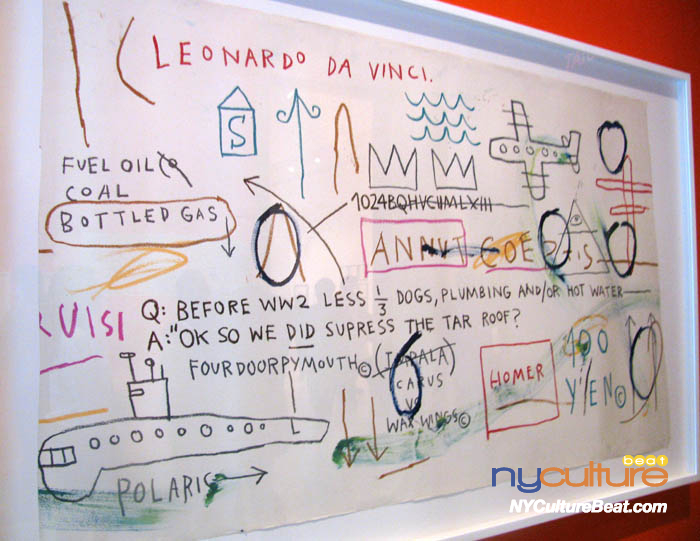 LEONARDO DA VINCI.
S
FUEL OIL
COAL
BOTTLED GAS
1024BQHVCIIMLXIII
ANNUIT COEPTIS
Q: BEFORE WW2 LESS 1/3 DOGS, PLUMBING AND/OR HOT WATER
RUISI
A: "OK SO WE DID SUPRESS THE TAR ROOF?
FOURDOORPYMOUTH© (IMPALA)
ICARUS
VS
WAX WINGS©
HOMER
100
YEN©
L
POLARIS
beat
nyculture
NYCultureBeat.com